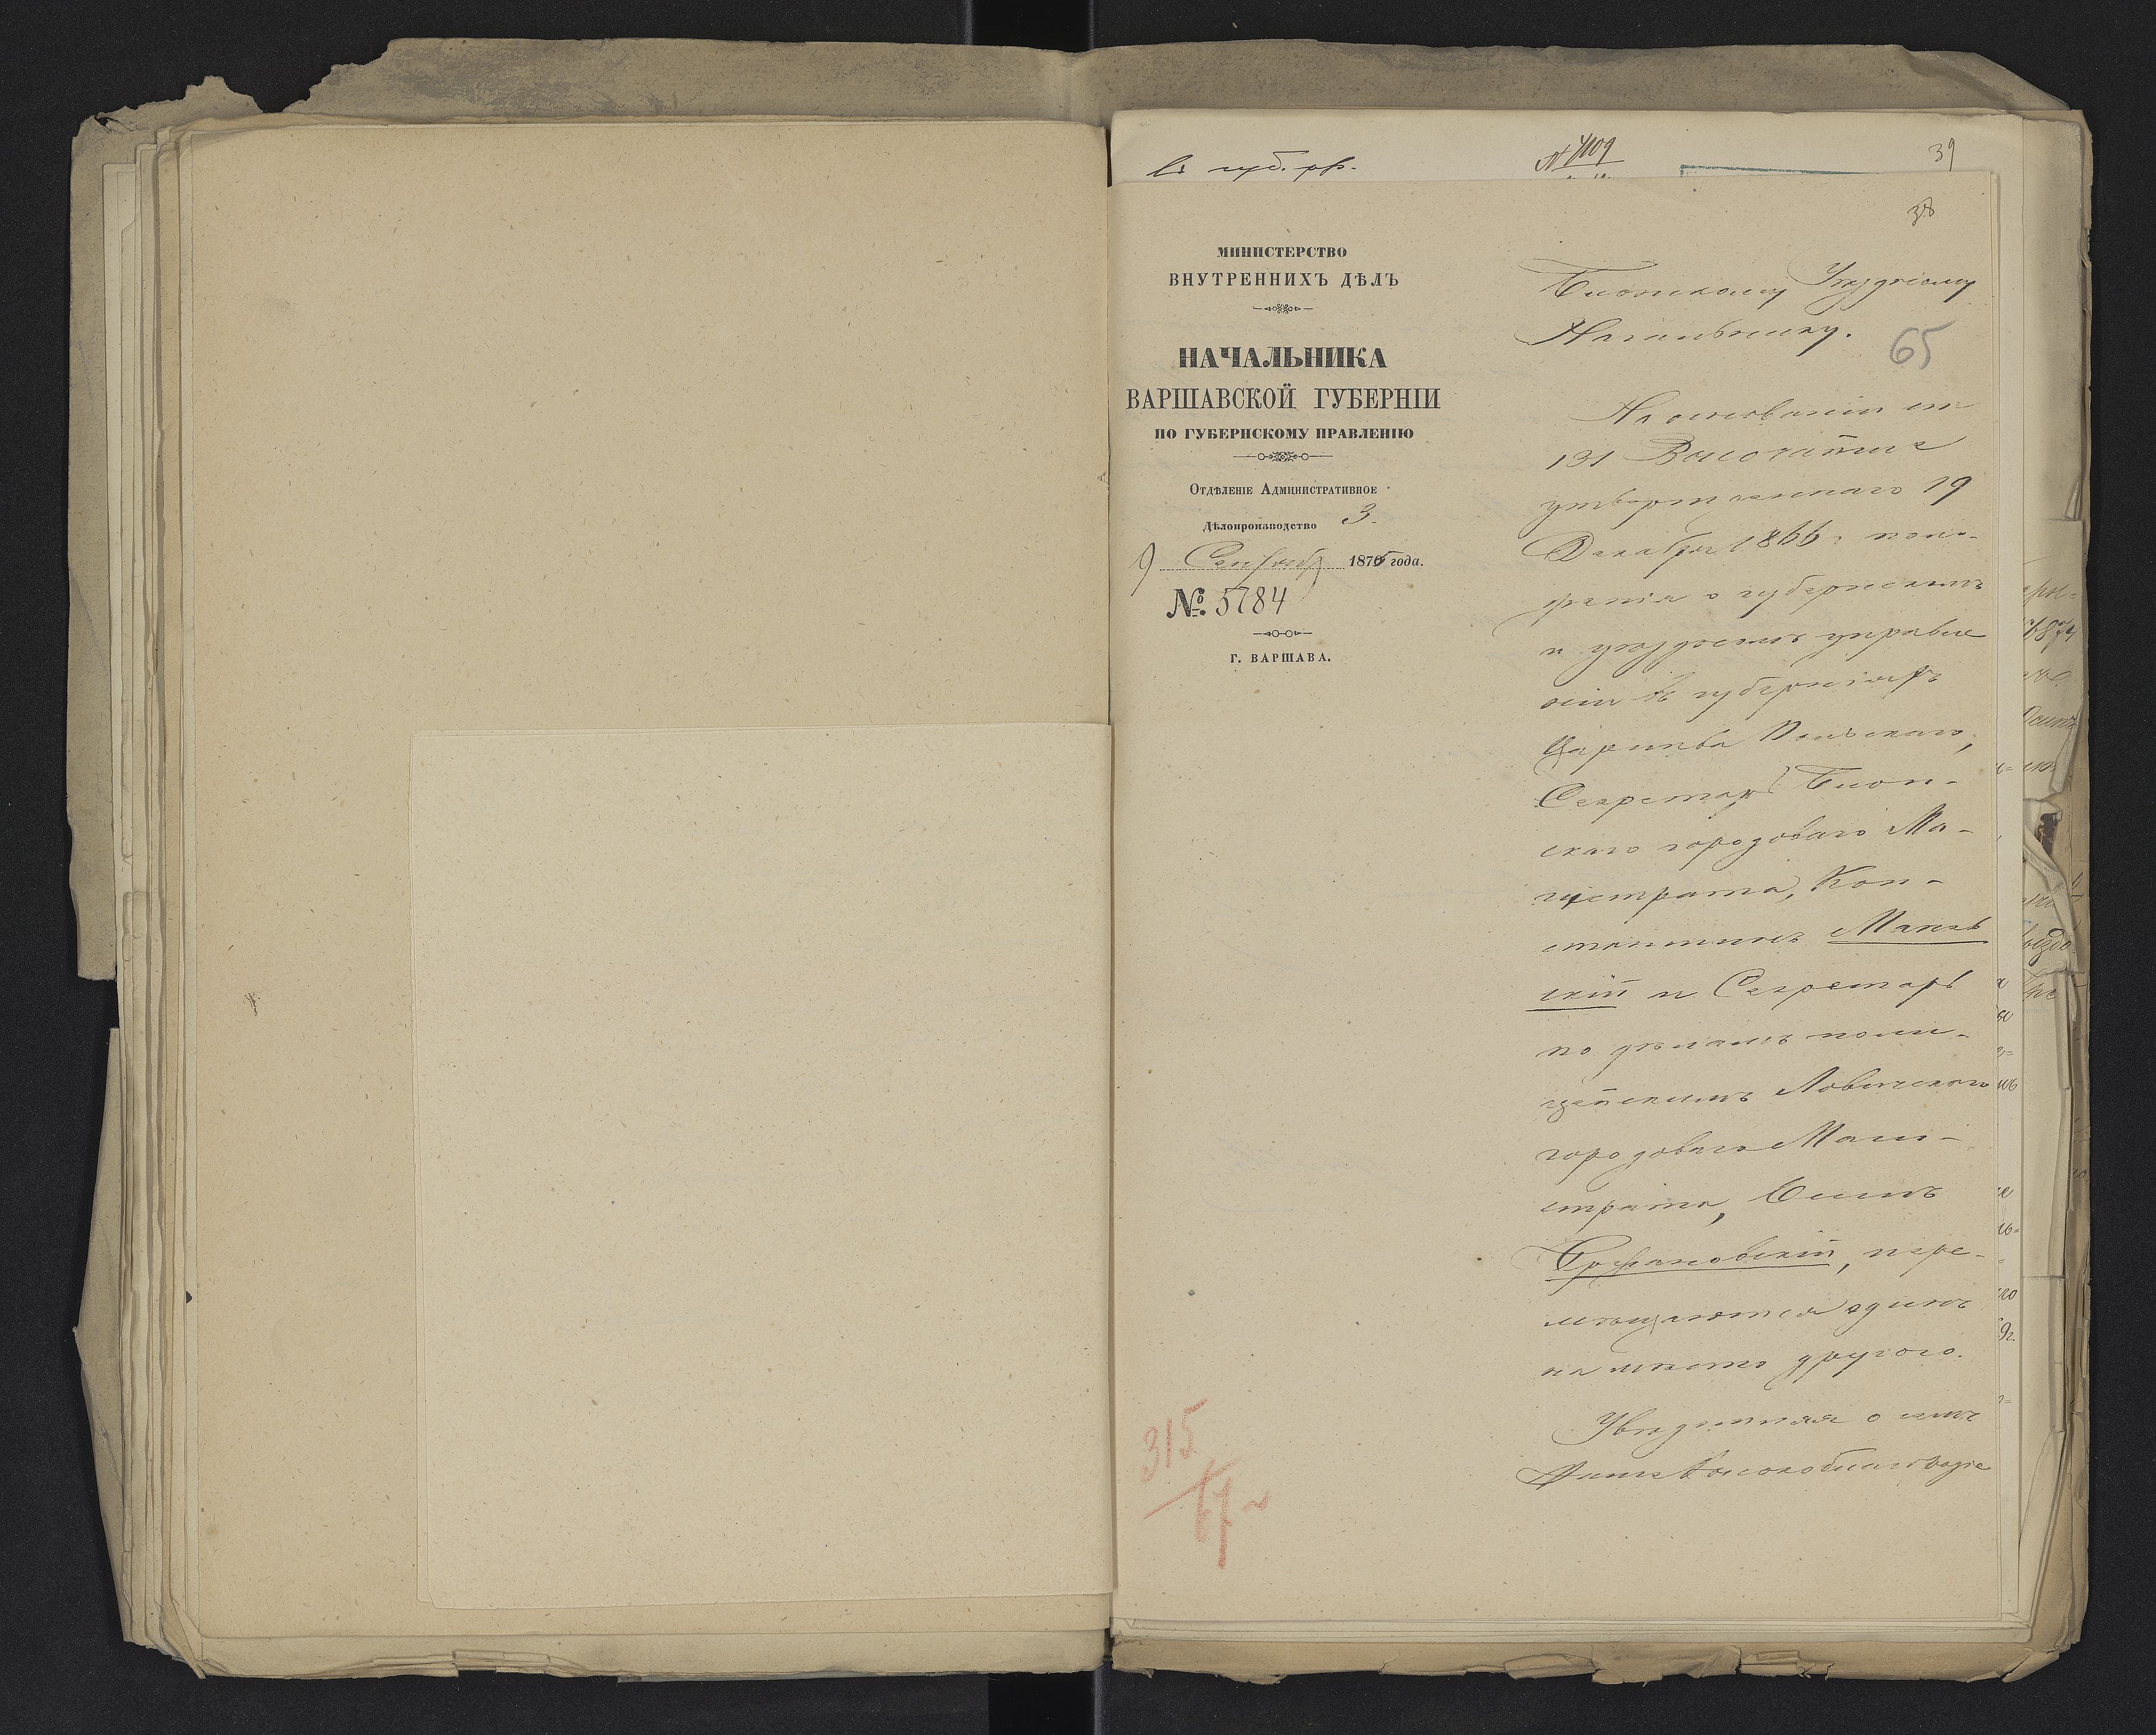 39
38
МИНИСТЕРСТВО
ВНУТРЕННИХЪ ДѢЛЪ
НАЧАЛЬНИКА
ВАРШАВСКОЙ ГУБЕРНІИ
ПО ГУБЕРНСКОМУ ПРАВЛЕНІЮ
Отдѣленіе Административное
Дѣлопроизводство 3.
9 Сентября 1875 года.
№ 5784
Г. ВАРШАВА.
315
Блонскому Уѣздному
Начальнику.
65
На основаніи ст
131 Высочайше
утвержденнаго 19
Декабря 1866 г поло-
женія о губернскомъ
и уѣздномъ управле
ніи въ губерніяхъ
Царства Польскаго,
Секретарь Блон-
скаго городоваго Ма-
гистрата, Кон-
стантинъ
скій и Секретарь
по дѣламъ поли-
цейскимъ Ловичскаго
городоваго Маги-
страта, Осипъ
пере-
мѣщаются одинъ
на мѣсто другого.
Увѣдомляя о семъ
Ваше Высокоблагородіе